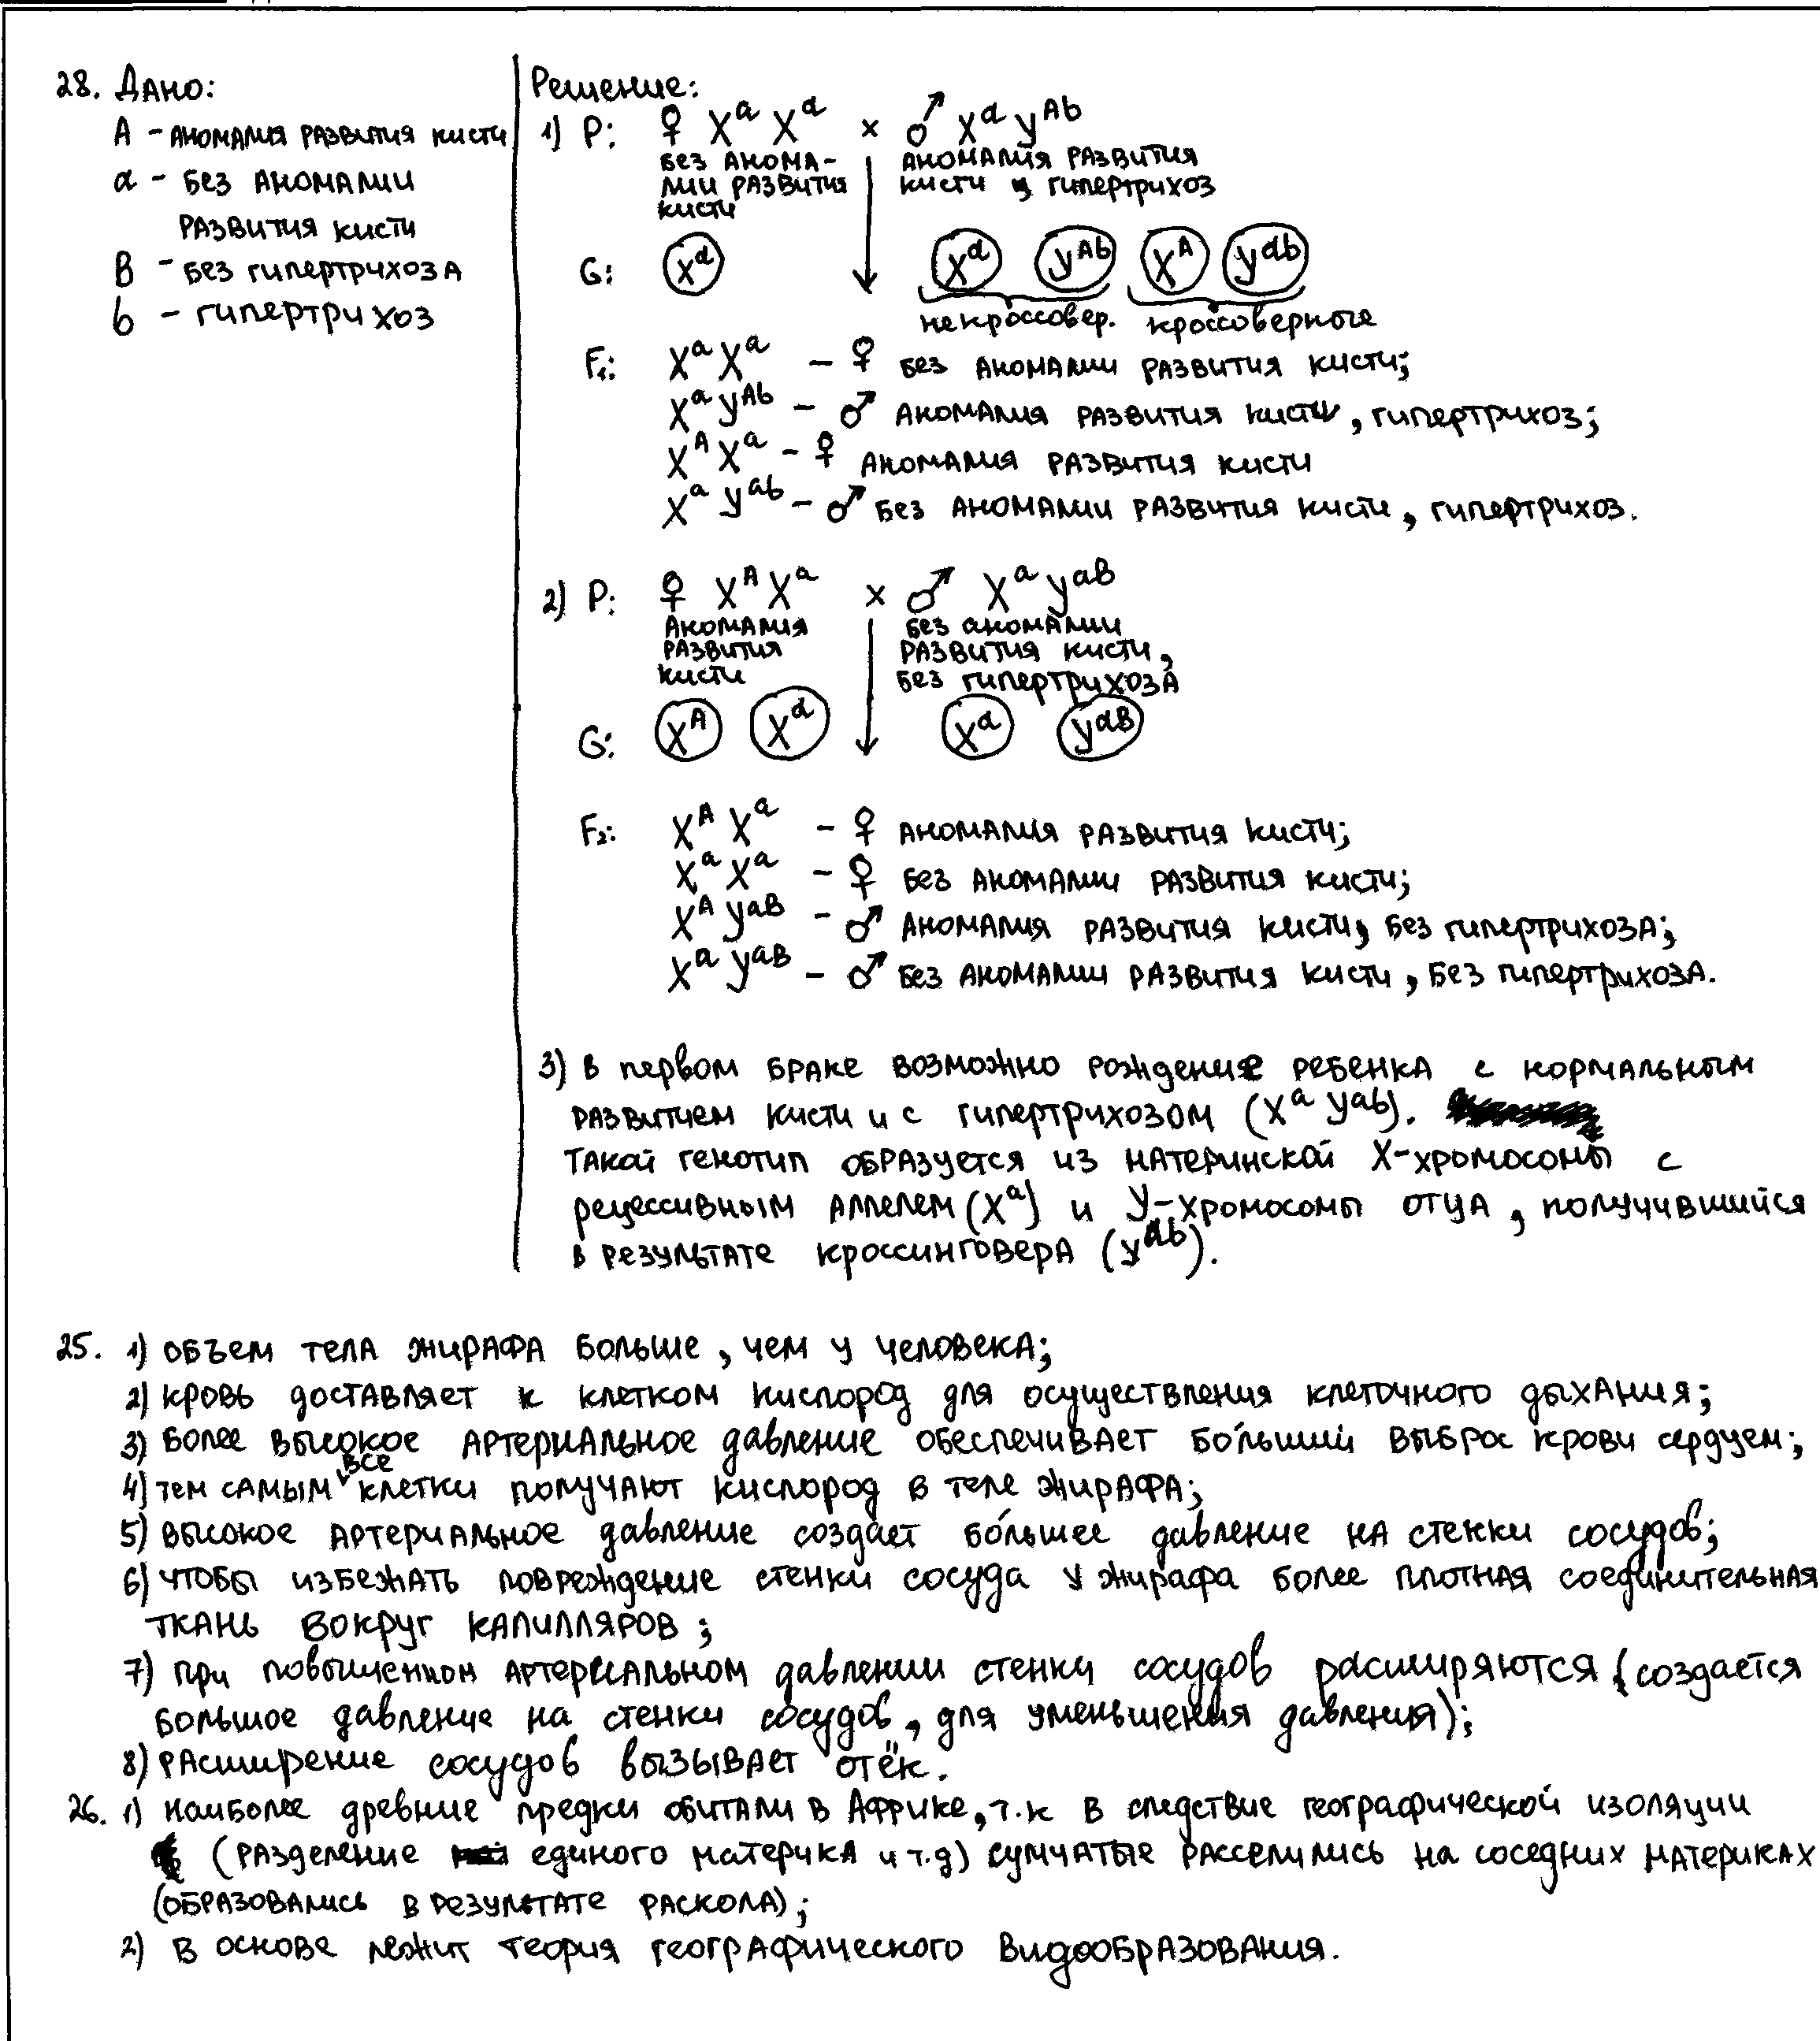 28. Дано:
А - аномалия развития кисти
а - без аномалии
развития кисти
В - без гипертрихоза
b - гипертрихоз
Решение:
1) P: ♀ Xᵃ Xᵃ × ♂ Xᵃ Yᴬᵇ
без анома- аномалия развития
лии развития кисти и гипертрихоз
кисти
G: Xᵃ Xᵃ Yᴬᵇ Xᴬ Yᵃᵇ
некроссовер. кроссоверные
F₁: XᵃXᵃ - ♀ без аномалии развития кисти;
XᵃYᴬᵇ - ♂ аномалия развития кисти, гипертрихоз;
XᴬXᵃ - ♀ аномалия развития кисти
XᵃYᵃᵇ - ♂ без аномалии развития кисти, гипертрихоз.
2) P: ♀ XᴬXᵃ × ♂ XᵃYᵃᴮ
аномалия без аномалии
развития развития кисти,
кисти без гипертрихоза
G: Xᴬ Xᵃ Xᵃ Yᵃᴮ
F₂: XᴬXᵃ - ♀ аномалия развития кисти;
XᵃXᵃ - ♀ без аномалии развития кисти;
XᴬYᵃᴮ - ♂ аномалия развития кисти, без гипертрихоза;
XᵃYᵃᴮ - ♂ без аномалии развития кисти, без гипертрихоза.
3) в первом браке возможно рождение ребенка с нормальным
развитием кисти и с гипертрихозом (XᵃYᵃᵇ).
Такой генотип образуется из материнской Х-хромосомы с
рецессивным аллелем (Xᵃ) и У-хромосомы отца, получившийся
в результате кроссинговера (Yᵃᵇ).
25. 1) объем тела жирафа больше, чем у человека;
2) кровь доставляет к клетком кислород для осуществления клеточного дыхания;
3) более высокое артериальное давление обеспечивает бо́льший выброс крови сердцем;
4) тем самым все клетки получают кислород в теле жирафа;
5) высокое артериальное давление создает бо́льшее давление на стенки сосудов;
6) чтобы избежать повреждение стенки сосуда у жирафа более плотная соединительная
ткань вокруг капилляров;
7) при повышенном артериальном давлении стенки сосудов расширяются (создается
большое давление на стенки сосудов, для уменьшения давления);
8) расширение сосудов вызывает отёк.
26. 1) наиболее древние предки обитали в Африке, т.к в следствие географической изоляции
(разделение единого материка и т.д) сумчатые расселились на соседних материках
(образовались в результате раскола);
2) в основе лежит теория географического видообразования.